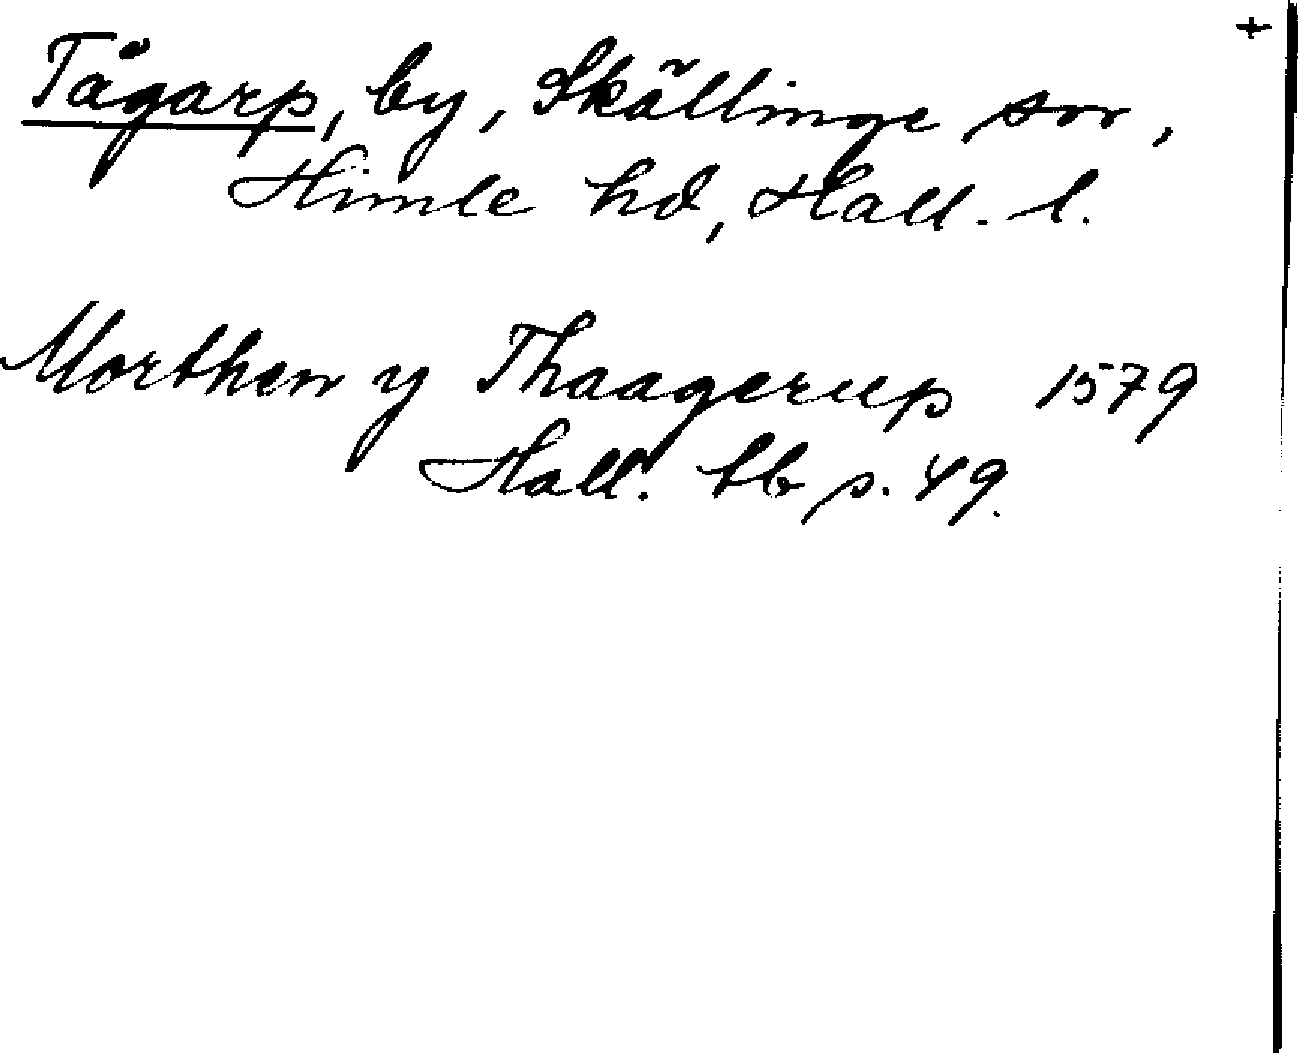 +
Tågarp, by, Skällinge sn,
Himle hd, Hall. l.
Morthen y Thaagerup 1579
Hall. tb p. 49.